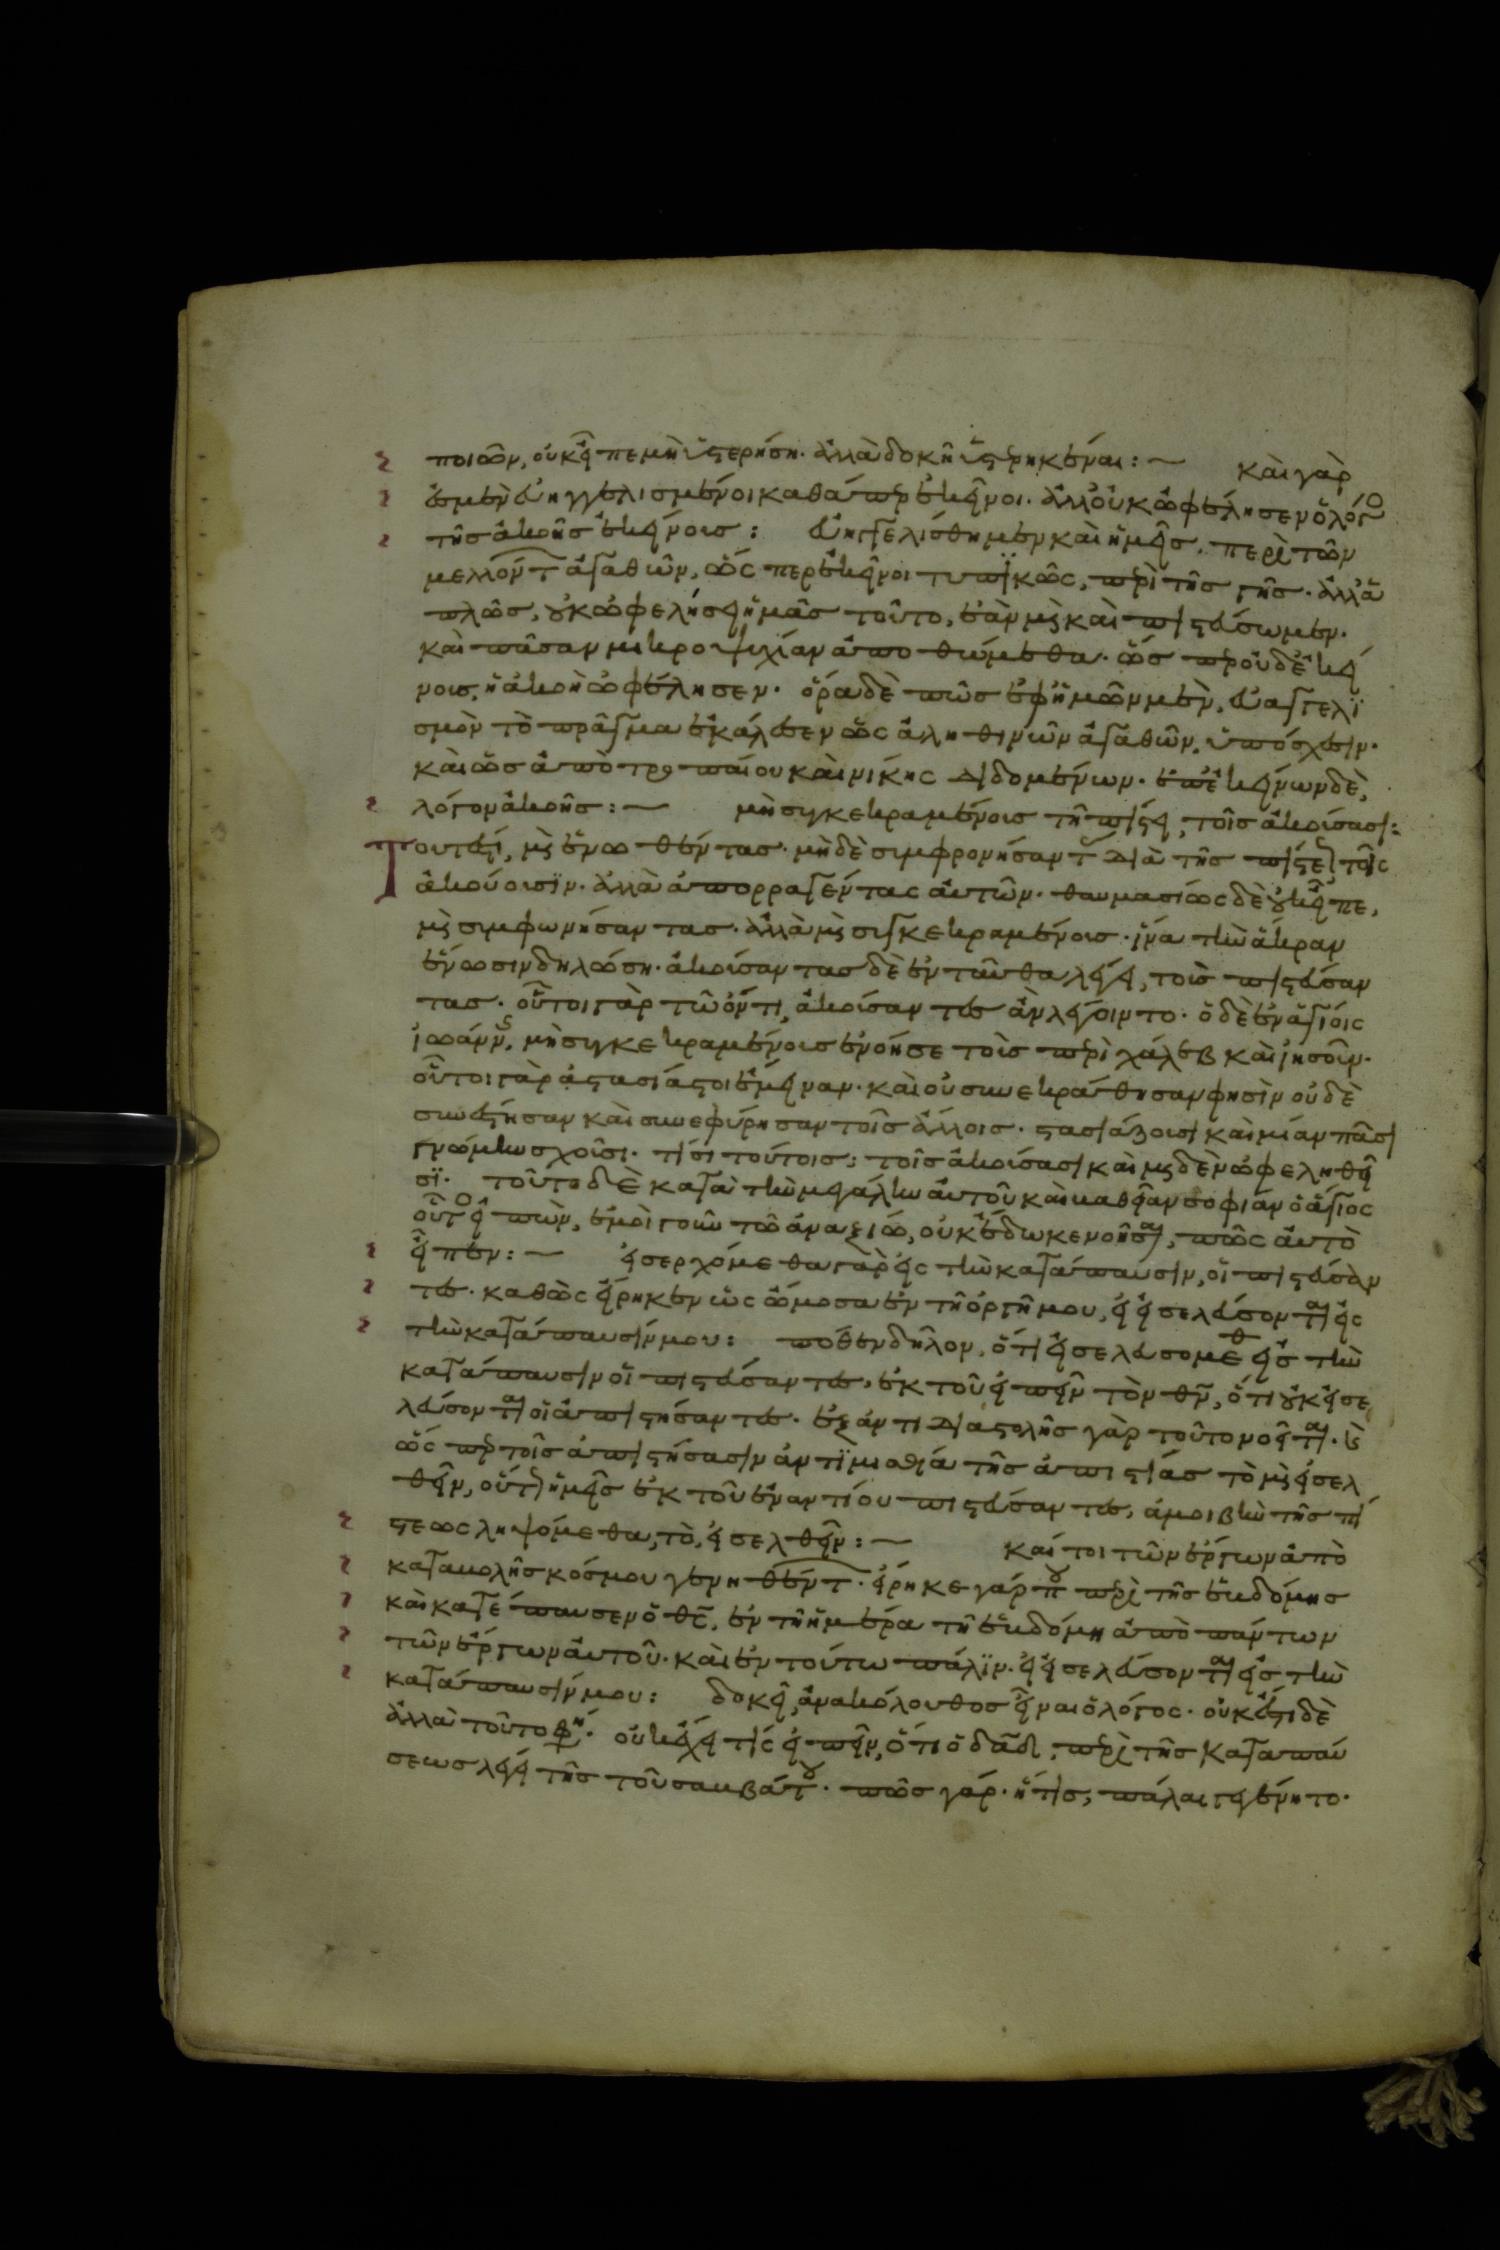 ποιῶν, οὐκ εἶπε μὴ ὑστερήσῃ. ἀλλὰ δοκῆ ὑστερηκέναι :~ καὶ γὰρ
ἐσμὲν εὐηγγελισμένοι καθάπερ ἐκεῖνοι. ἀλλ' οὐκ ὠφέλησεν ὁ λόγο
τῆς ἀκοῆς ἐκείνοις : εὐηγγελίσθημεν καὶ ἡμεῖς. περὶ τῶν
μελλοντ ἀγαθῶν, ὥσπερ ἐκεῖνοι τυπικῶς, περὶ τῆς γῆς. ἀλλ' ἁ
πλῶς, οὐκ ὠφελήσει ἡμᾶς τοῦτο, ἐὰν μὴ καὶ πιστεύσωμεν.
καὶ πᾶσαν μικροψυχίαν ἀποθώμεθα. ὥσπερ οὐδὲ ἐκεί
νοις, ἡ ἀκοὴ ὠφέλησεν. ὅρα δὲ πῶς ἐφ' ἡμῶν μὲν, εὐαγγελι
σμὸν τὸ πρᾶγμα ἐκάλεσεν ὡς ἀληθινῶν ἀγαθῶν, ὑπόσχεσιν.
καὶ ὡς ἀπὸ τροπαίου καὶ νίκης διδομένων. ἐπ' ἐκείνων δὲ,
λόγον ἀκοῆς :~ μὴ συγκεκραμένοις τῇ πίστει, τοῖς ἀκούσασι :
Τουτέστι, μὴ ἑνωθέντας. μηδὲ συμφρονήσαντ διὰ τῆς πίστε τοῖς
ἀκούουσιν. ἀλλὰ ἀπορραγέντας αὐτῶν. θαυμασίως δὲ οὐκ εἶπε,
μὴ συμφωνήσαντας. ἀλλὰ μὴ συγκεκραμένοις. ἵνα τὴν ἄκραν
ἕνωσιν δηλώσῃ. ἀκούσαντας δὲ ἐνταῦθα λέγει, τοὺς πιστεύσαν
τας. οὗτοι γὰρ τῷ ὄντι, ἀκούσαντες ἂν λέγοιντο. ὁ δὲ ἐν ἁγίοις
ἰωάννης, μὴ συγκεκραμένοις ἐνόησε τοῖς περὶ χάλεβ καὶ ἰησοῦν.
οὗτοι γὰρ ἀστασίαστοι ἔμειναν. καὶ οὐ συνεκράθησαν φησὶν οὐδὲ
συνέστησαν καὶ συνεφύρησαν τοῖς ἄλλοις. στασιάζουσι καὶ μίαν πᾶσι
γνώμην σχοῦσι. τίσι τούτοις; τοῖς ἀκούσασι καὶ μηδὲν ὠφεληθεῖ
σι. τοῦτο δὲ κατὰ τὴν μεγάλην αὐτοῦ καὶ βαθεῖαν σοφίαν ὁ ἅγιος
οὗτο εἰπὼν, ἐμοὶ γοῦν τῷ ἀναξίῳ, οὐκ ἔδωκε νοῆσαι, πῶς αὐτὸ
εἶπεν :~ εἰσερχόμεθα γὰρ εἰς τὴν κατάπαυσιν, οἱ πιστεύσαν
τες. καθὼς εἴρηκεν ὡς ὤμοσα ἐν τῇ ὀργῇ μου, εἰ εἰσελεύσονται εἰς
τὴν κατάπαυσίν μου : πόθεν δῆλον, ὅτι εἰσελευσόμεθ εἰς τὴν
κατάπαυσιν οἱ πιστεύσαντες, ἐκ τοῦ εἰπεῖν τὸν θν, ὅτι οὐκ εἰσε
λεύσονται οἱ ἀπιστήσαντες. ἐξ ἀντιδιαστολῆς γὰρ τοῦτο νοεῖται. καὶ
ὥσπερ τοῖς ἀπιστήσασιν ἀντιμισθία τῆς ἀπιστίας τὸ μὴ εἰσελ
θεῖν, οὕτω ἡμεῖς ἐκ τοῦ ἐναντίου πιστεύσαντες, ἀμοιβὴν τῆς πί
στεως ληψόμεθα, τὸ, εἰσελθεῖν :~ καίτοι τῶν ἔργων ἀπὸ
καταβολῆς κόσμου γενηθέντ. εἴρηκε γάρ που περὶ τῆς ἑβδόμης
καὶ κατέπαυσεν ὁ θς, ἐν τῇ ἡμέρα τῇ ἑβδόμη ἀπὸ πάντων
τῶν ἔργων αὐτοῦ. καὶ ἐν τούτω πάλιν. εἰ εἰσελεύσονται εἰς τὴν
κατάπαυσίν μου : δοκεῖ, ἀνακόλουθος εἶναι ὁ λόγος. οὐκ ἔστι δὲ
ἀλλὰ τοῦτο φη. οὐκ ἔχει τίς εἰπεῖν, ὅτι ὁ δαδ, περὶ τῆς καταπαύ
σεως λέγει τῆς τοῦ σαββάτου. πῶς γάρ. ἥτις, πάλαι γεγένητο.